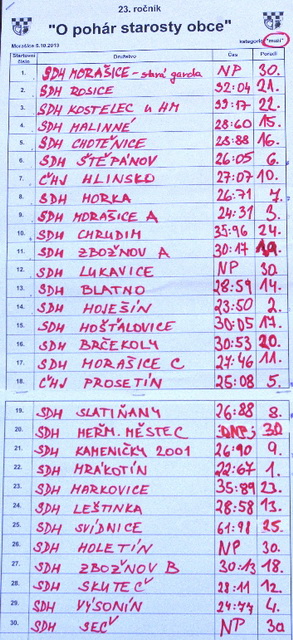 23. ročník
"O pohár starosty obce"
Morašice 5.10.2013 kategorie "muži"
Startovní číslo Družstvo Čas Pořadí
1. SDH MORAŠICE - stará garda NP 30.
2. SDH ROSICE 32:04 21.
3. SDH KOSTELEC u HM 33:17 22.
4. SDH MALINNÉ 28:60 15.
5. SDH CHOTĚNICE 28:88 16.
6. SDH ŠTĚPÁNOV 26:05 6.
7. ČHJ HLINSKO 27:07 10.
8. SDH HORKA 26:71 7.
9. SDH MORAŠICE A 24:31 3.
10. SDH CHRUDIM 35:96 24.
11. SDH ZBOŽNOV A 30:17 19.
12. SDH LUKAVICE NP 30.
13. SDH BLATNO 28:59 14.
14. SDH HOJEŠÍN 23:50 2.
15. SDH HOŠŤALOVICE 30:05 17.
16. SDH BRČEKOLY 30:53 20.
17. SDH MORAŠICE C 27:46 11.
18. ČHJ PROSETÍN 25:08 5.
19. SDH SLATIŇANY 26:88 8.
20. SDH HEŘM. MĚSTEC NP 30
21. SDH KAMENIČKY 2001 26:90 9.
22. SDH MRÁKOTÍN 22:67 1.
23. SDH MARKOVICE 35:89 23.
24. SDH LEŠTINKA 28:58 13.
25. SDH SVÍDNICE 61:98 25.
26. SDH HOLETÍN NP 30.
27. SDH ZBOŽNOV B 30:13 18.
28. SDH SKUTEČ 28:11 12.
29. SDH VÝSONÍN 24:74 4.
30. SDH SEČ NP 30